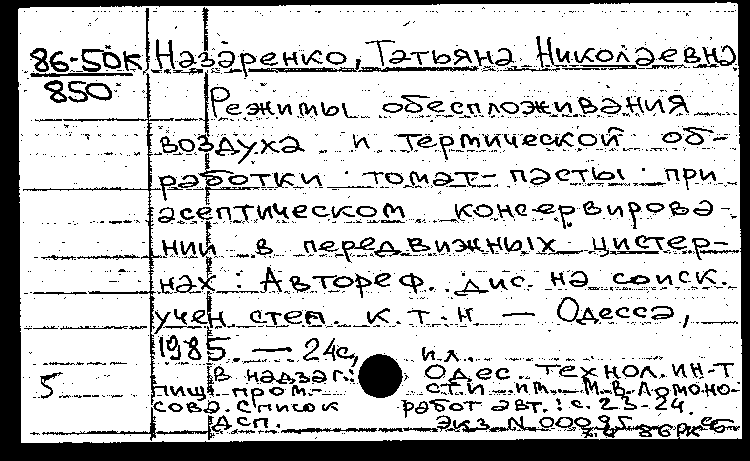 86-50К Назаренко, Татьяна Николаевна
850
Режимы обеспложивания
воздуха и термической об-
работки томат-пасты при
асептическом консервирова-
нии в передвижных цистер-
нах: Автореф. дис. на соиск.
учен. степ. к.т.н — Одесса,
1985. — 24с, ил.
В надзаг.: Одес. технол. ин-т
5 пищ. пром-сти им. М.В. Ломоно-
сова. Список работ авт.: с. 23-24.
Дсп. Экз. N 00095